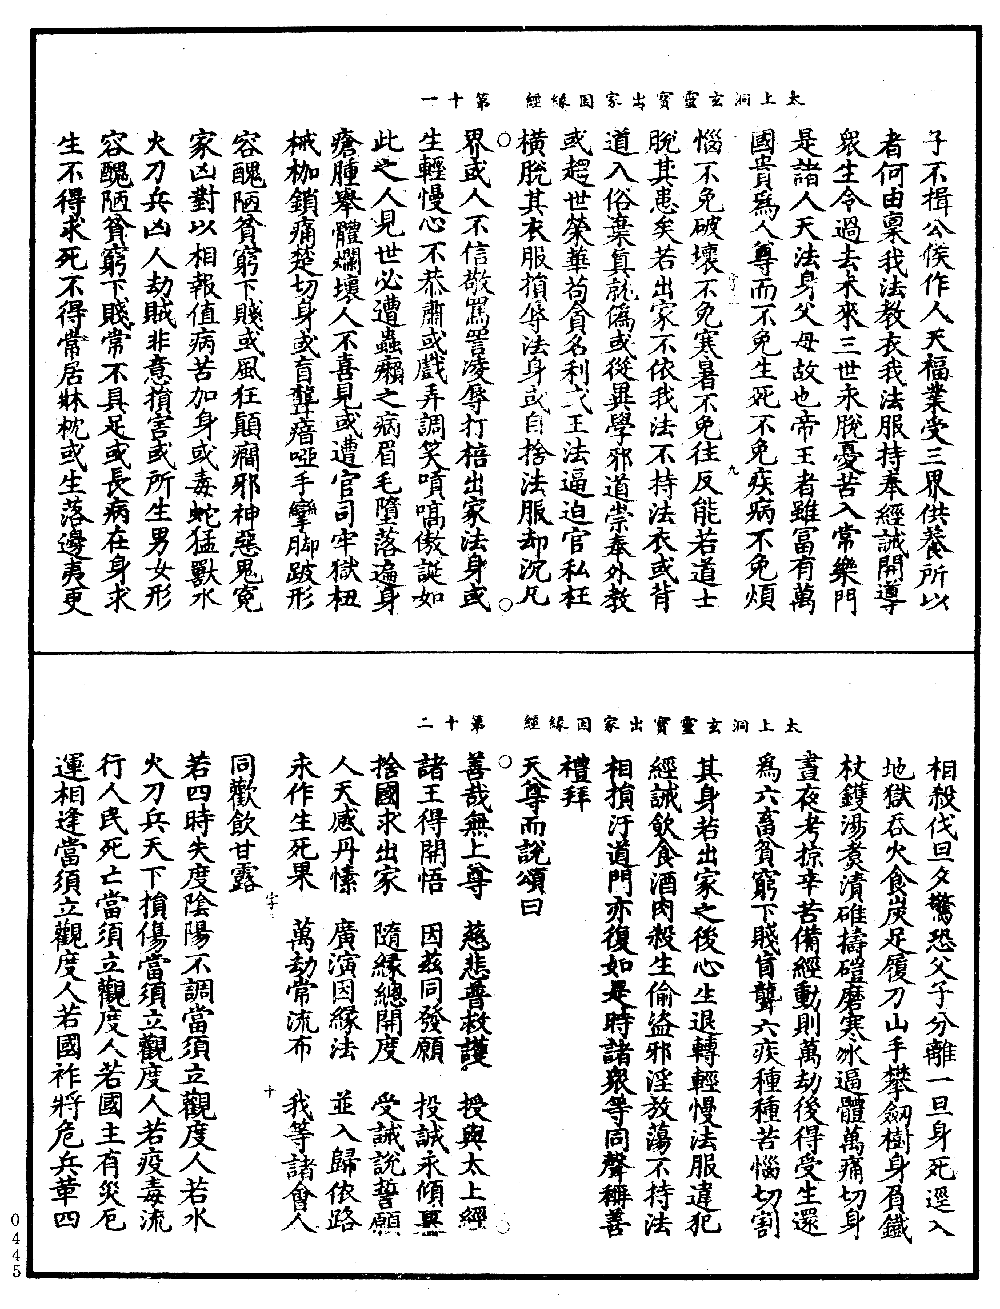 太上洞玄靈寶出家因緣經　第十一
子不揖公侯作人天福業受三界供養所以
者何由稟我法教衣我法服持奉經誡開導
衆生令過去未來三世永脫憂苦入常樂門
是諸人天法身父母故也帝王者雖冨有萬
國貴爲人尊而不免生死不免疾病不免煩
字一　九
惱不免破壞不免寒暑不免往反能若道士
脫其患矣若出家不依我法不持法衣或背
道入俗棄真就偽或從異學邪道崇奉外教
或趨世榮華苟貪名利或王法逼迫官私枉
橫脫其衣服損辱法身或自捨法服却沉凡
界或人不信敬罵詈淩辱打棓出家法身或
生輕慢心不恭肅或戲弄調笑嗔嗃傲誕如
此之人見世必遭蟲癩之病眉毛墮落遍身
瘡腫舉體爛壞人不喜見或遭官司牢獄杻
械枷鎖痛楚切身或盲聾瘖啞手攣脚跛形
容醜陋貧窮下賤或風狂顛癎邪神惡鬼寃
家凶對以相報值病苦加身或毒蛇猛獸水
火刀兵凶人劫賊非意損害或所生男女形
容醜陋貧窮下賤常不具足或長病在身求
生不得求死不得常居牀枕或生落邊夷更
太上洞玄靈寶出家因緣經　第十二
相殺伐旦夕驚恐父子分離一旦身死逕入
地獄吞火食炭足履刀山手攀劒樹身負鐵
杖鑊湯煑漬碓擣磑磨寒冰逼體萬痛切身
晝夜考掠辛苦備經動則萬劫後得受生還
爲六畜貧窮下賤盲聾六疾種種苦惱切割
其身若出家之後心生退轉輕慢法服違犯
經誡飲食酒肉殺生偷盜邪淫放蕩不持法
相損汙道門亦復如是時諸衆等同聲稱善
禮拜
天尊而說頌曰
善哉無上尊　慈悲普救護　授與太上經
諸王得開悟　因兹同發願　投誠永傾畢
捨國求出家　隨縁總開度　受誡說誓願
人天感丹愫　廣演因緣法　並入歸依路
永作生死果　萬劫常流布　我等諸會人
字二　十
同歡飲甘露
若四時失度陰陽不調當須立觀度人若水
火刀兵天下損傷當須立觀度人若疫毒流
行人民死亡當須立觀度人若國主有災厄
運相逢當須立觀度人若國祚將危兵革四
0445